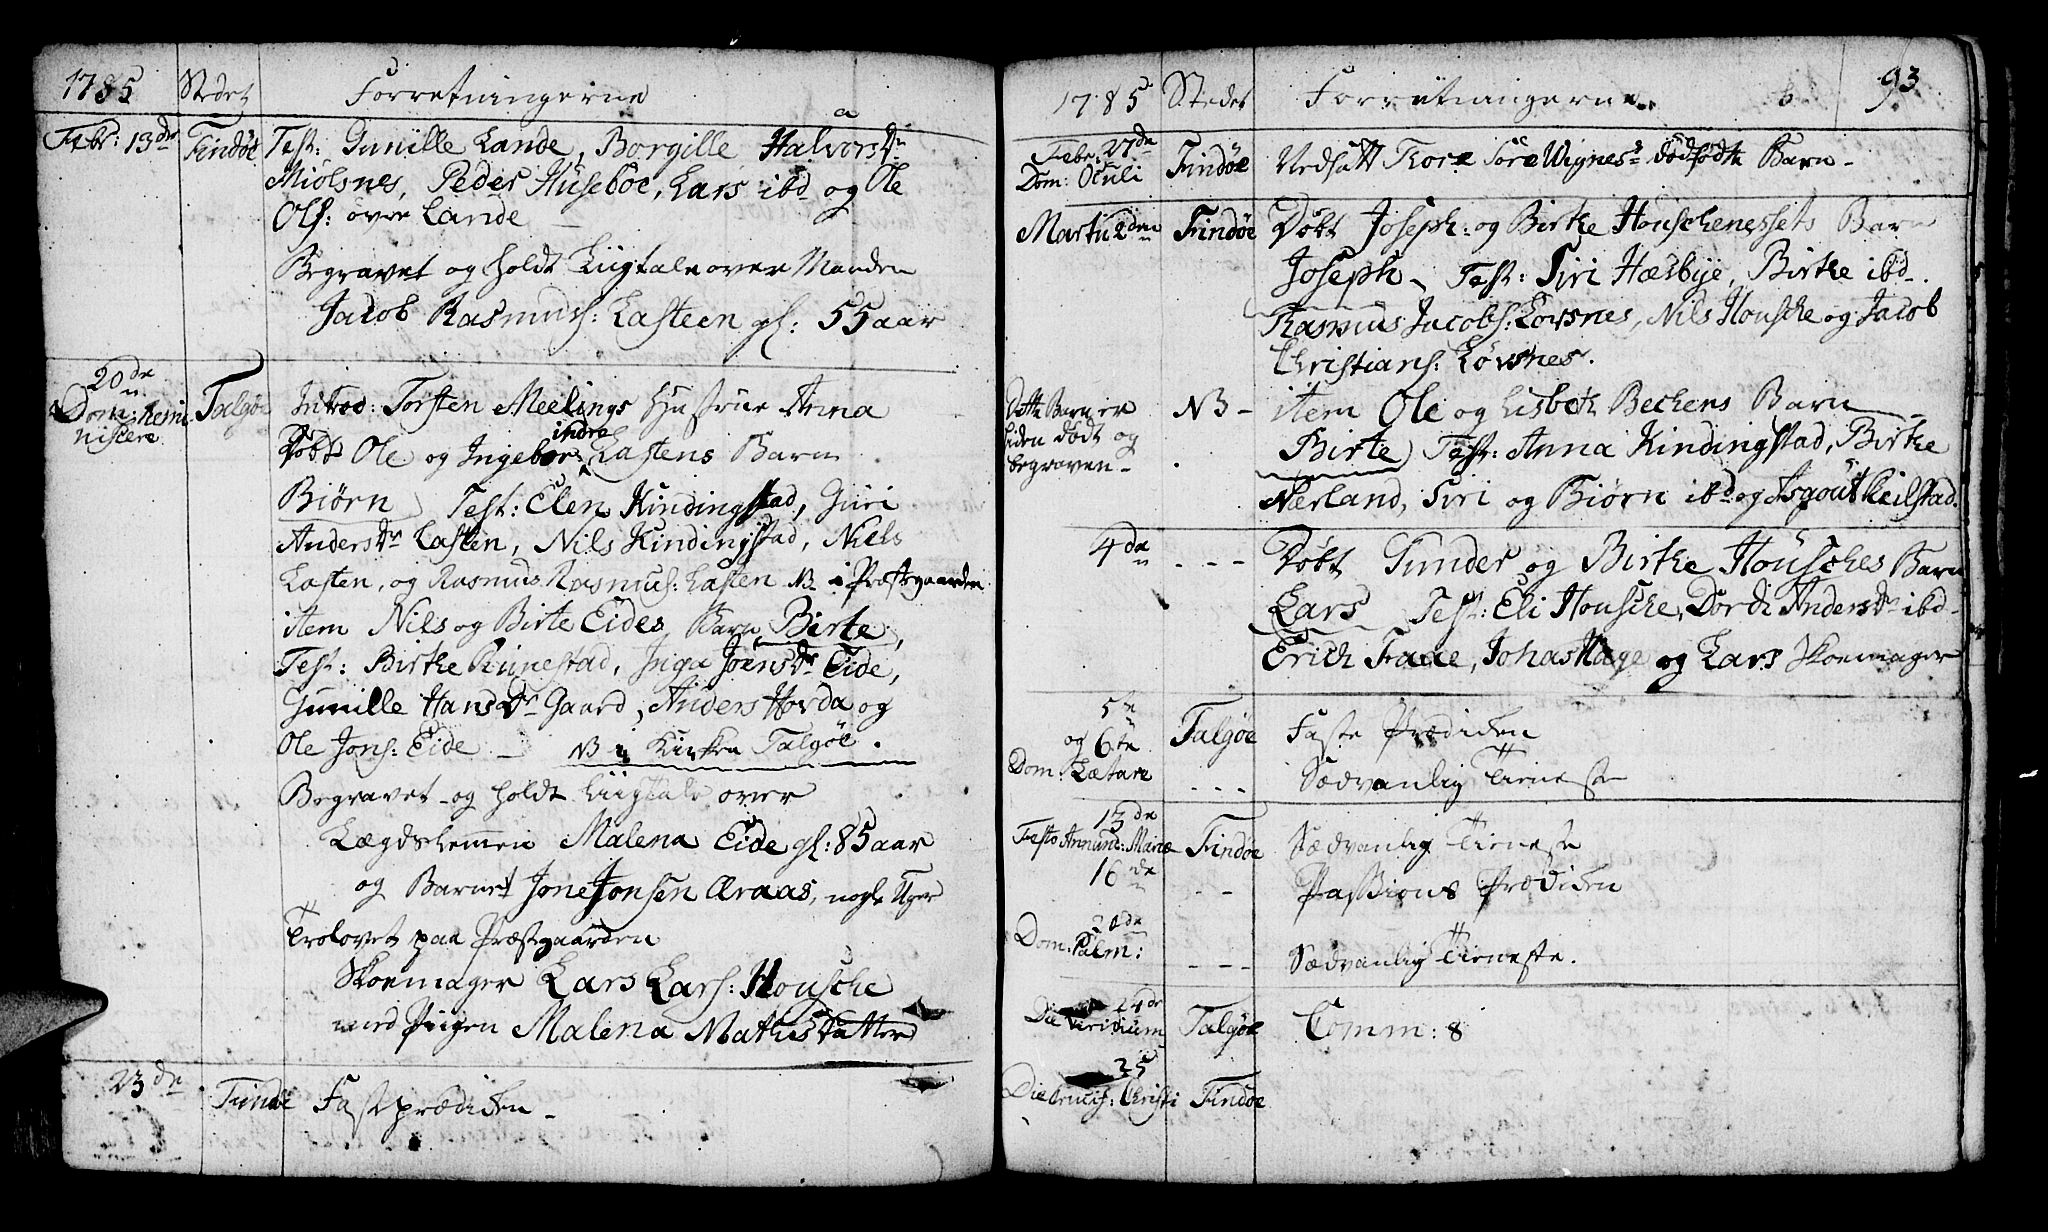 1785 Stedet Forretningerne
a
Febr: 13de Findøe Test: Gunille Lande, Borgille HalvorsDr
Miølsnes, Peder Husebøe, Lars ibd og Ole
Ols: øvre Lande
Begravet og holdt Liigtale over Manden
Jacob Rasmuss: Lasteen gl: 55 aar
20de
Dom: Remi
niscere Talgøe Introd: Torsten Meelings Hustrue Anna
indre
Døbt Ole og Ingebor Lastens Barn
Biørn Test: Elen Kindingstad, Guri
AndersDr Lasten, Nils Kindingstad, Niels
Lasten, og Rasmus Rasmus: Lasten NB i Præstegaarden
item Nils og Birte Eides Barn Birte,
Test: Birthe Rünestad, Inga JoensDr Eide,
Gunille HansDr Gaard, Anders Horda og
Ole Jons: Eide NB i Kirken Talgøe.
Begravet og holdt Liigtale over
Lægdslemmen Malena Eide gl: 85 aar
og Barnet Jone Jonsen Araas, nogle Uger
Trolovet paa Præstgaarden
Skoemager Lars Lars: Housche
med Piigen Malena Mathisdatter
23de Findøe Fasteprædiken
1785 Stedet Forretningerne b 93
Febr: 27de
Dom: Oculi Findøe Nedsatt Tore Tore Wignes's dødfødte Barn
Martii 2den Findøe Døbt Joseph: og Birthe Houschenessets Barn
Joseph Test: Siri Hæsbye, Birthe ibd
Rasmus Jacobs: Lovsnes, Nils Housche og Jacob
Christians: Løvsnes.
Dette Barn er
siden dødt og
begraven NB item Ole og Lisbeth Bechens Barn
Birte Test: Anna Kindingstad, Birthe
Nerland, Siri og Biørn ibd og Asgout Reilstad.
4de Døbt Gunder og Birthe Housches Barn
Lars Test: Eli Housche, Dordi AndersDr ibd
Erich Faae, Johas Hage og Lars Skoemager
5te
og 6te Talgøe Faste Prædiken
Dom: Lætare Sædvanlig Tieneste
13de
Festo Annunc: Mariæ Findøe Sædvanlig Tieneste
16de Passions Prædiken
20de
Dom: Palm: Sædvanlig Tieneste.
24de
Die Viridium Talgøe Comm: 8
25
Die Crucif: Christi Findøe